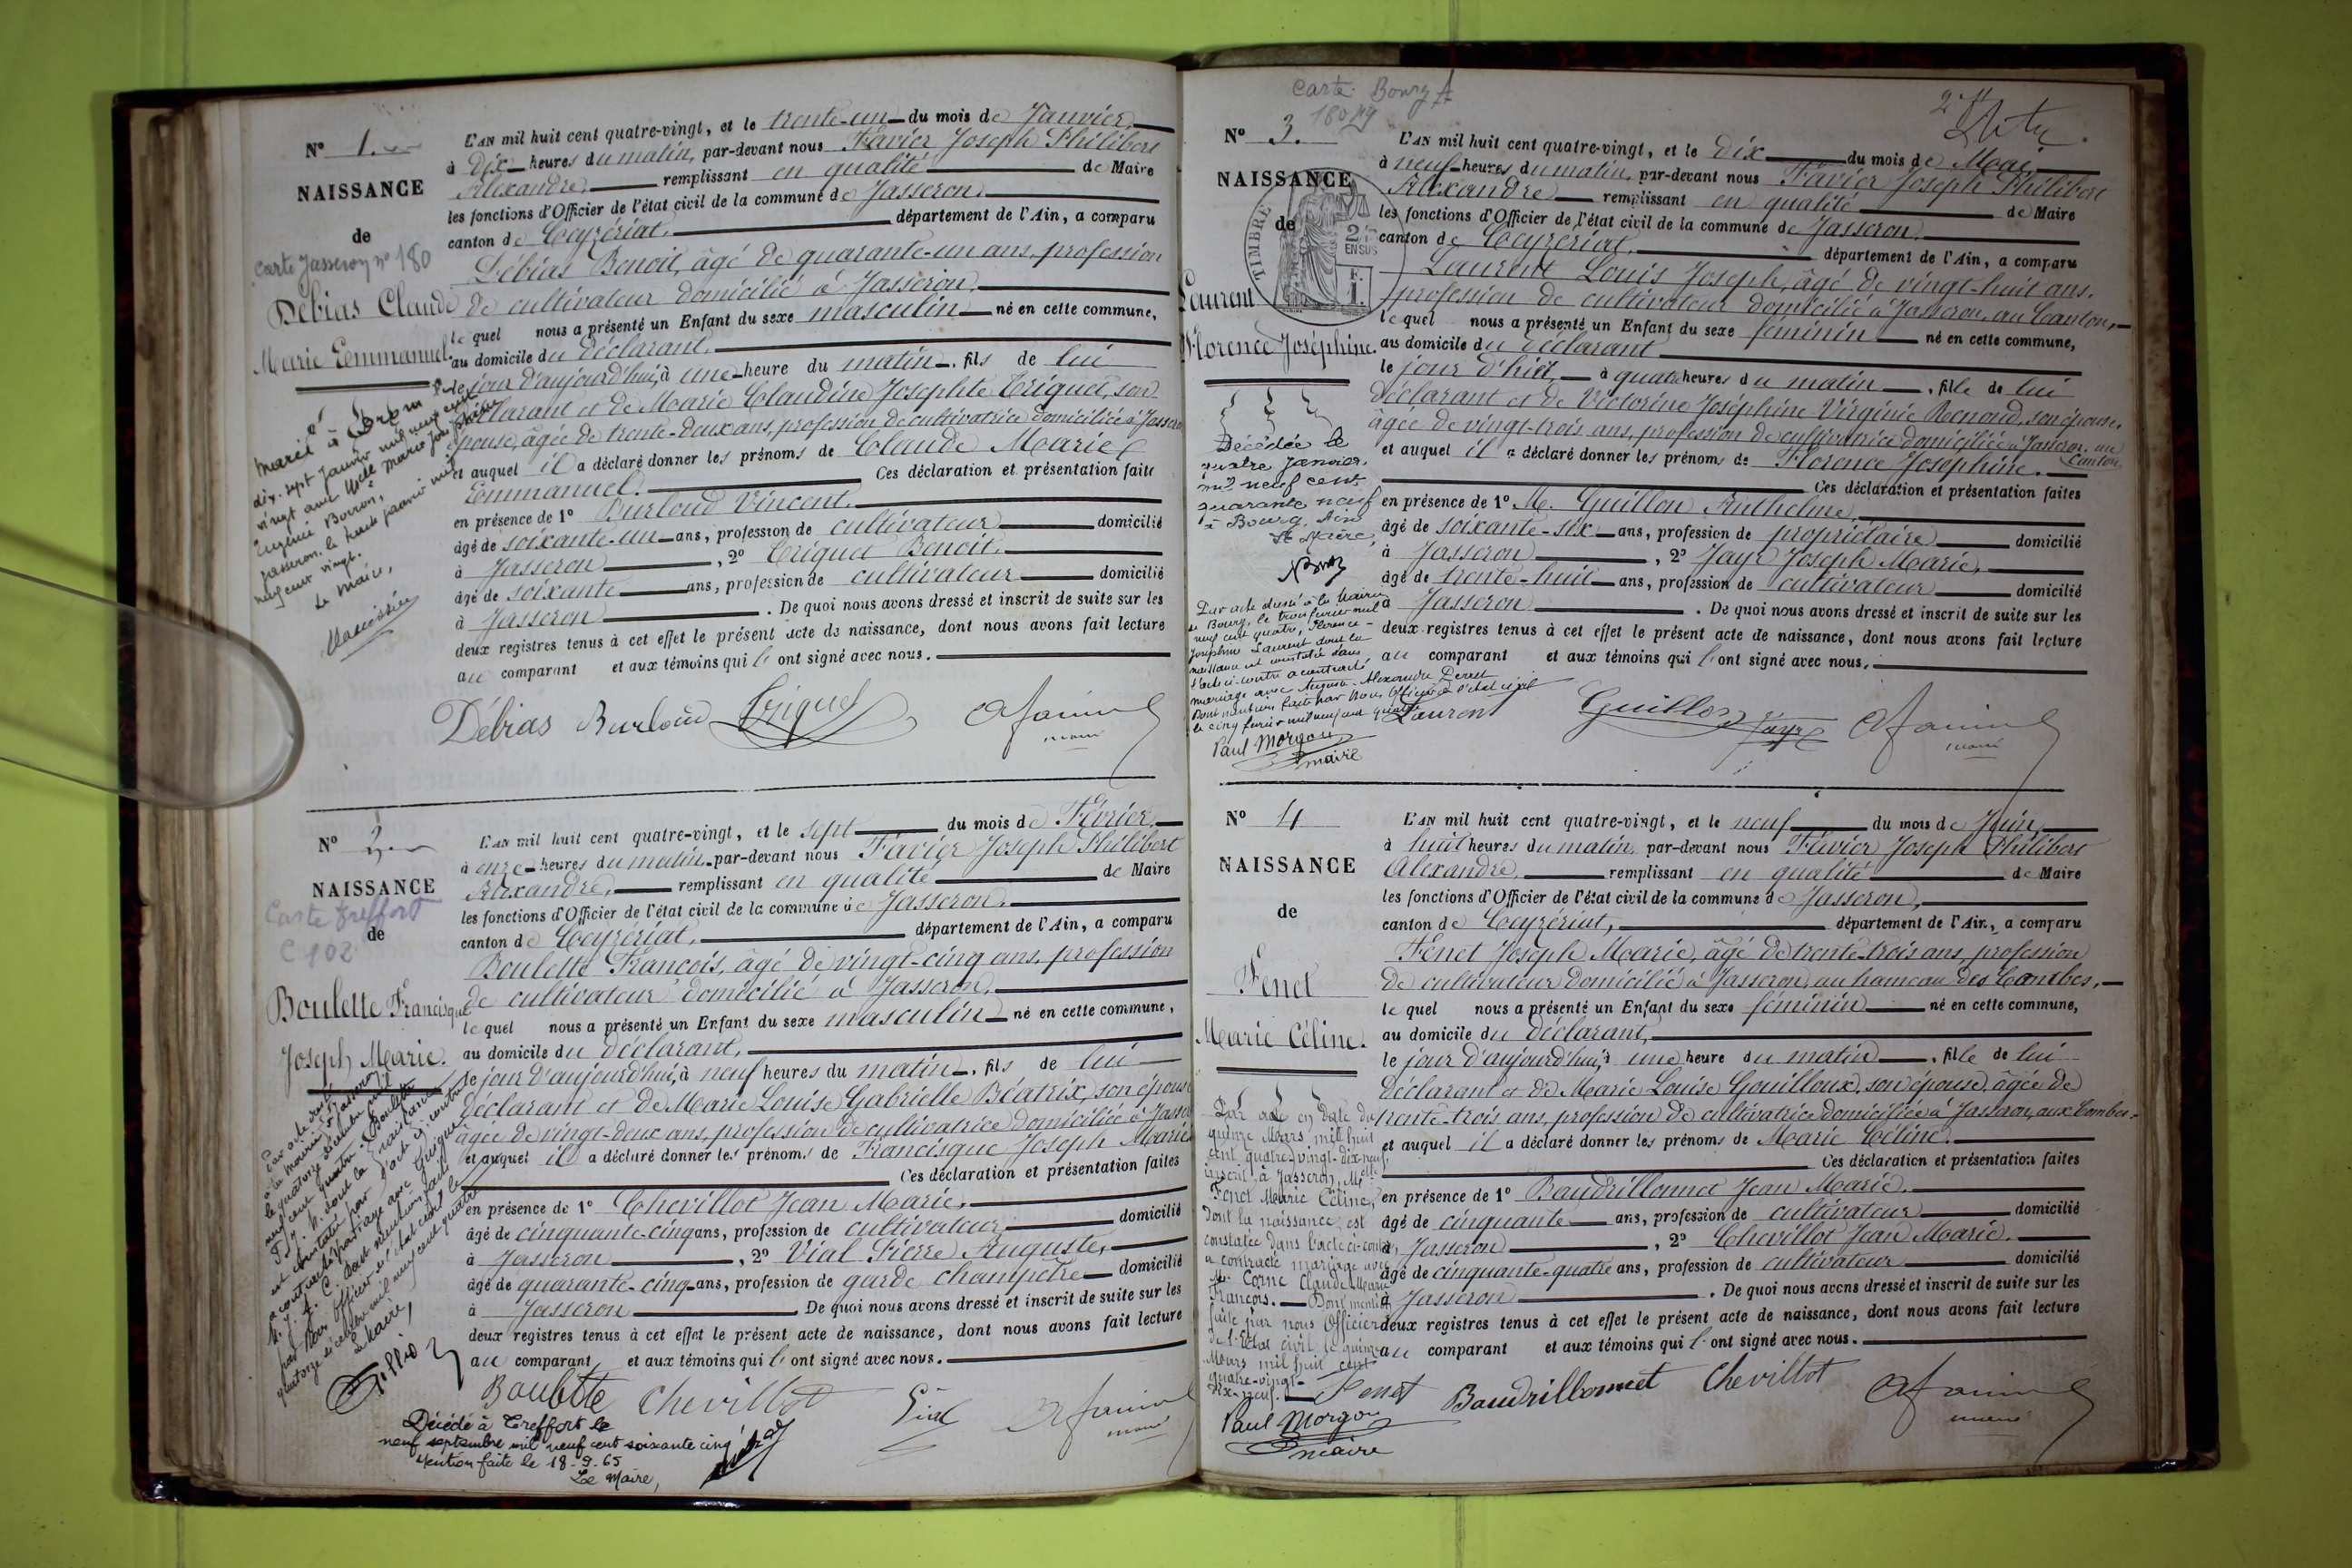 N° 1.
NAISSANCE
de
Carte Jasseron n° 180
Débias Claude
Marie Emmanuel.
Marié à
dix-sept janvier mil neuf cent
vingt avec Melle Marie Joséphine
Eugénie
Jasseron, le trente janvier mil
neuf cent vingt.
Le Maire,
L'AN mil huit cent quatre-vingt, et le trente-un du mois de Janvier
à Dix heures du matin, par-devant nous Favier Joseph Philibert
Alexandre, remplissant en qualité de Maire
les fonctions d'Officier de l'état civil de la commune de Jasseron,
canton de Ceyzériat, département de l'Ain, a comparu
Débias Benoit, âgé de quarante-un ans, profession
de cultivateur domicilié à Jasseron,
le quel nous a présenté un Enfant du sexe masculin né en cette commune,
au domicile du déclarant,
le jour d'aujourd'hui, à une heure du matin, fils de lui
déclarant et de Marie Claudine Josephte Triquet, son
épouse, âgée de trente-deux ans, profession de cultivatrice domiciliée à Jasseron
et auquel il a déclaré donner les prénoms de Claude Marie
Emmanuel. Ces déclaration et présentation faite
en présence de 1° Burloud Vincent,
âgé de soixante-un ans, profession de cultivateur domicilié
à Jasseron, 2° Triquet Benoit,
âgé de soixante ans, profession de cultivateur domicilié
à Jasseron. De quoi nous avons dressé et inscrit de suite sur les
deux registres tenus à cet effet le présent acte de naissance, dont nous avons fait lecture
au comparant et aux témoins qui l'ont signé avec nous.
Débias Burloud Triquet
maire
N° 2
NAISSANCE
Carte Treffort
de
C 102
Boulette Francisque
Joseph Marie.
Par acte
à la mairie de Jasseron
le quatorze décembre mil
neuf cent quatre, Boulette
F. J. M. dont la naissance
est constatée par l'acte ci-contre
a contracté mariage avec
par Nous Officier de l'état civil le
quatorze décembre mil neuf cent quatre
Le Maire,
L'AN mil huit cent quatre-vingt, et le sept du mois de Février
à onze heures du matin par-devant nous Favier Joseph Philibert
Alexandre, remplissant en qualité de Maire
les fonctions d'Officier de l'état civil de la commune de Jasseron,
canton de Ceyzériat, département de l'Ain, a comparu
Boulette François, âgé de vingt-cinq ans, profession
de cultivateur domicilié à Jasseron,
le quel nous a présenté un Enfant du sexe masculin né en cette commune,
au domicile du déclarant,
le jour d'aujourd'hui, à neuf heures du matin, fils de lui
déclarant et de Marie Louise Gabrielle Béatrix, son épouse
âgée de vingt-deux ans, profession de cultivatrice domiciliée à Jasseron
et auquel il a déclaré donner les prénoms de Francisque Joseph Marie
Ces déclaration et présentation faites
en présence de 1° Chevillot Jean Marie,
âgé de cinquante-cinq ans, profession de cultivateur domicilié
à Jasseron, 2° Vial Pierre Auguste,
âgé de quarante-cinq ans, profession de garde champêtre domicilié
à Jasseron. De quoi nous avons dressé et inscrit de suite sur les
deux registres tenus à cet effet le présent acte de naissance, dont nous avons fait lecture
au comparant et aux témoins qui l'ont signé avec nous.
Boulette Chevillot Vial
maire
Décédé à Treffort le
neuf septembre mil neuf cent soixante cinq
Mention faite le 18-9-65
Le Maire,
Carte Bourg
N° 3.
NAISSANCE
de
TIMBRE
EN SUS
Laurent
Florence Joséphine.
Décédée le
quatre Janvier
mil neuf cent
quarante neuf
à Bourg, Ain
Le Maire,
Par acte dressé à la Mairie
de Bourg, le trois février mil
neuf cent quatre, Florence-
Joséphine Laurent dont la
naissance est constatée dans
l'acte ci-contre a contracté
mariage avec Auguste-Alexandre
Dont mention faite par Nous Officier de l'état civil
le cinq février mil neuf cent quatre
Paul Morgon
maire
L'AN mil huit cent quatre-vingt, et le dix du mois de Mai
à neuf heures du matin, par-devant nous Favier Joseph Philibert
Alexandre remplissant en qualité de Maire
les fonctions d'Officier de l'état civil de la commune de Jasseron,
canton de Ceyzériat, département de l'Ain, a comparu
Laurent Louis Joseph, âgé de vingt-huit ans,
profession de cultivateur domicilié à Jasseron au Canton,
le quel nous a présenté un Enfant du sexe féminin né en cette commune,
au domicile du déclarant
le jour d'hier à quatre heures du matin, fille de lui
déclarant et de Victorine Joséphine Virginie Renoud, son épouse,
âgée de vingt-trois ans, profession de cultivatrice domiciliée à Jasseron, au
Canton
et auquel il a déclaré donner les prénoms de Florence Joséphine.
Ces déclaration et présentation faites
en présence de 1° M. Guillon Anthelme,
âgé de soixante-six ans, profession de propriétaire domicilié
à Jasseron, 2° Jayr Joseph Marie,
âgé de trente-huit ans, profession de cultivateur domicilié
à Jasseron. De quoi nous avons dressé et inscrit de suite sur les
deux registres tenus à cet effet le présent acte de naissance, dont nous avons fait lecture
au comparant et aux témoins qui l'ont signé avec nous,
Laurent Guillon Jayr
maire
N° 4
NAISSANCE
de
Fenet
Marie Céline.
Par acte en date du
quinze Mars mil huit
cent quatre-vingt-dix-neuf
inscrit à Jasseron, Melle
Fenet Marie Céline,
dont la naissance est
constatée dans l'acte ci-contre
a contracté mariage avec
Mr Corne Claude Marie
François. Dont mention
faite par nous Officier
de l'Etat civil le quinze
Mars mil huit cent
quatre-vingt-
dix-neuf.
Paul Morgon
maire
L'AN mil huit cent quatre-vingt, et le neuf du mois de Juin
à huit heures du matin, par-devant nous Favier Joseph Philibert
Alexandre, remplissant en qualité de Maire
les fonctions d'Officier de l'état civil de la commune de Jasseron,
canton de Ceyzériat, département de l'Ain, a comparu
Fenet Joseph Marie, âgé de trente-trois ans, profession
de cultivateur domicilié à Jasseron, au hameau des Combes,
le quel nous a présenté un Enfant du sexe féminin né en cette commune,
au domicile du déclarant,
le jour d'aujourd'hui, à une heure du matin, fille de lui
déclarant et de Marie Louise Gouilloux, son épouse, âgée de
trente-trois ans, profession de cultivatrice domiciliée à Jasseron, aux Combes,
et auquel il a déclaré donner les prénoms de Marie Céline.
Ces déclaration et présentation faites
en présence de 1° Baudrillonnet Jean Marie,
âgé de cinquante ans, profession de cultivateur domicilié
à Jasseron, 2° Chevillot Jean Marie,
âgé de cinquante-quatre ans, profession de cultivateur domicilié
à Jasseron. De quoi nous avons dressé et inscrit de suite sur les
deux registres tenus à cet effet le présent acte de naissance, dont nous avons fait lecture
au comparant et aux témoins qui l'ont signé avec nous.
Fenet Baudrillonnet Chevillot
maire